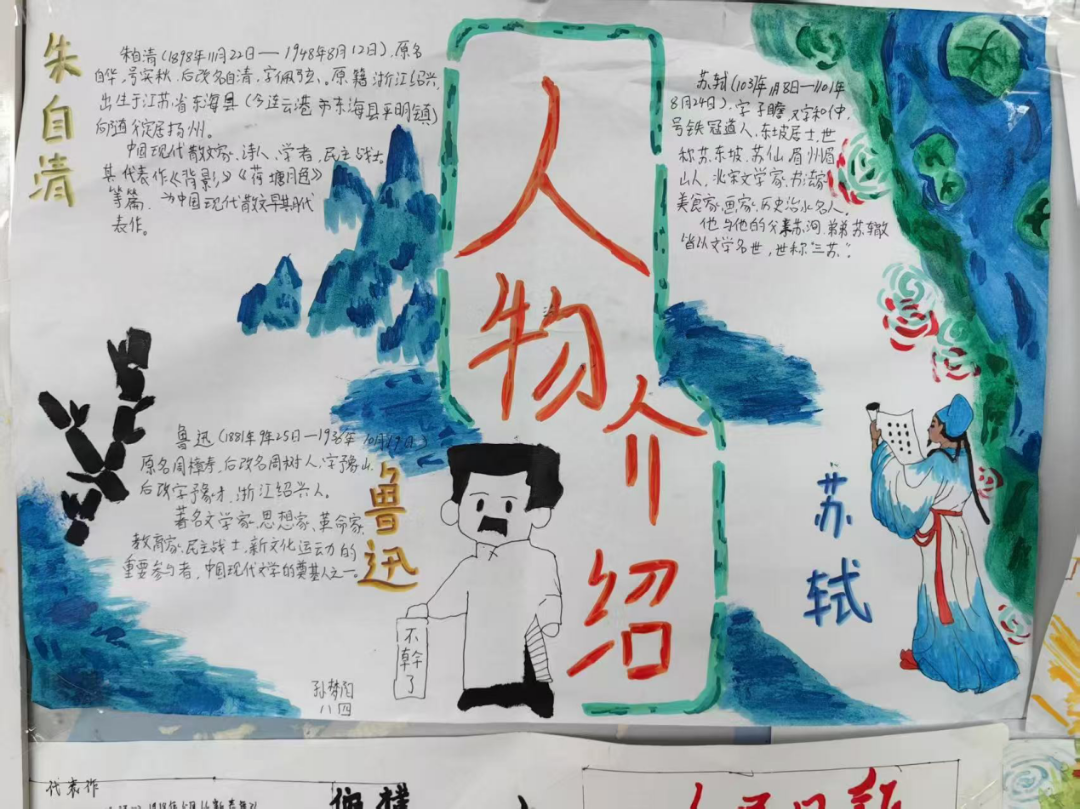 朱自清
朱自清(1898年11月22日—1948年8月12日),原名
自华,号实秋,后改名自清,字佩弦。原籍浙江绍兴
出生于江苏省东海县(今连云港市东海县平明镇)
后随父定居扬州。
中国现代散文家、诗人、学者、民主战士。
其代表作《背影》《荷塘月色》
等篇,为中国现代散文早期代
表作。
人物介绍
苏轼(1037年1月8日—1101年
8月24日),字子瞻,又字和仲,
号铁冠道人、东坡居士,世
称苏东坡、苏仙,眉州眉
山人,北宋文学家、书法家
美食家、画家,历史治水名人。
他与他的父亲苏洵、弟弟苏辙
皆以文学名世,世称“三苏”。
苏轼
鲁迅(1881年9年25日—1936年10月19日)
原名周樟寿,后改名周树人,字豫山,
后改字豫才,浙江绍兴人。
著名文学家、思想家、革命家
教育家、民主战士,新文化运动的
重要参与者,中国现代文学的奠基人之一。
鲁迅
不幹了
孙梦阳
八四
代表作